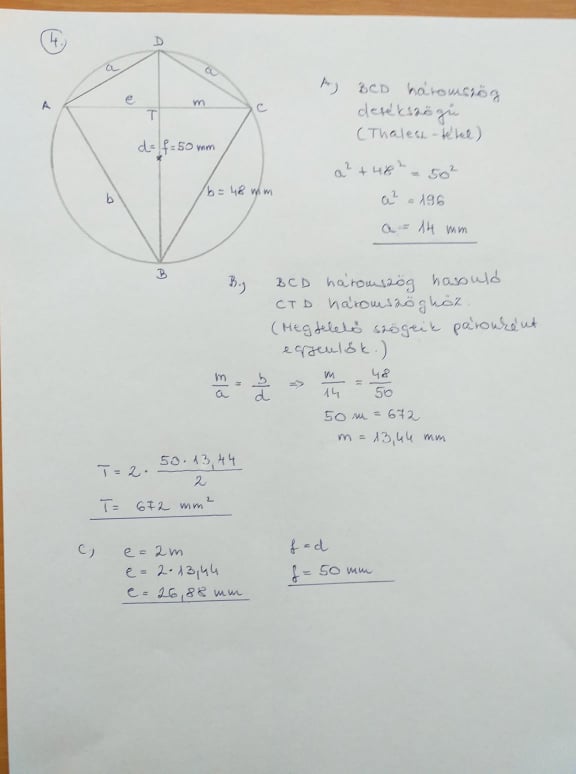 4.
D
a a
A e m C
T
d = f = 50 mm
b b = 48 mm
B
A, BCD háromszög
derékszögű
(Thalesz-tétel)
a² + 48² = 50²
a² = 196
a = 14 mm
B, BCD háromszög hasonló
CTD háromszöghöz.
(Megfelelő szögeik páronként
egyenlők.)
m/a = b/d ⇒ m/14 = 48/50
50 m = 672
m = 13,44 mm
T = 2 · 50 · 13,44 / 2
T = 672 mm²
C, e = 2m f = d
e = 2 · 13,44 f = 50 mm
e = 26,88 mm